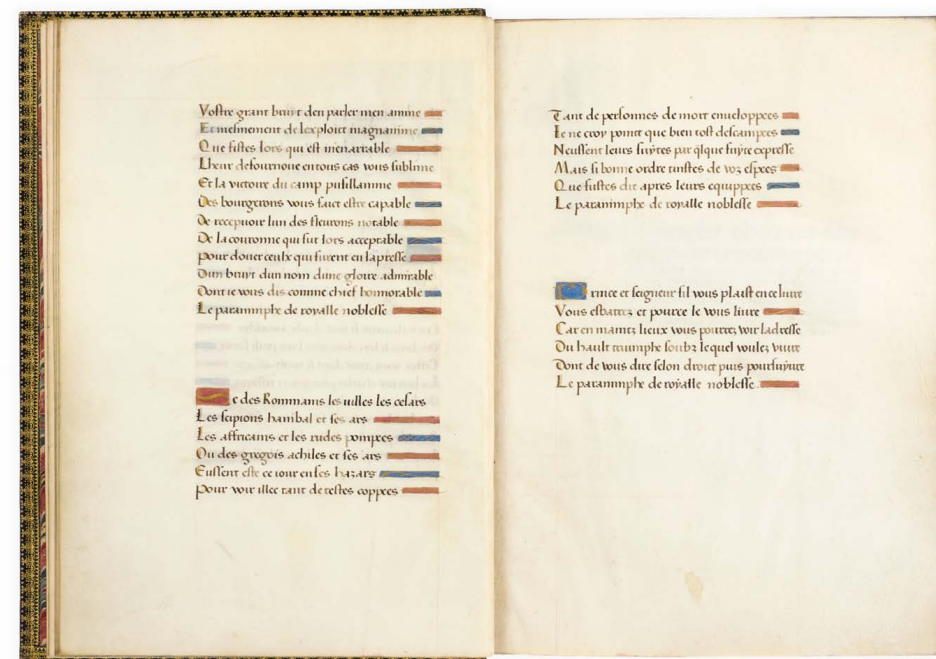 Vostre grant bruit den parler men anime
Et mesmement de lexploict magnanime
Que fistes lors qui est inenarrable
Lheur desournoie en tous cas vous sublime
Et la victoire du camp pusillanime
Des bourgeons vous faict estre capable
De recepuoir lun des fleurons notable
De la couronne qui fut lors acceptable
Pour douer ceulx qui furent en lapresse
Dun bruyt dun nom dune gloire admirable
Dont ie vous dis comme chief honnorable
Le paranimphe de royalle noblesse
e des Rommains les iulles les cesars
Les scipions hanibal et ses ars
Les affricains et les rudes pompees
Ou des gregois achiles et ses ars
Eussent este ce iour en ses hazars
Pour voir illec tant de testes coppees
Tant de personnes de mort enueloppees
Ie ne croy point que bien tost descampees
Neussent leurs suytes par qlque fuyte expresse
Mais si bonne ordre tinstes de voz espees
Que fustes dit apres leurs equippees
Le paranimphe de royalle noblesse
rince et seigneur sil vous plaist en ce liure
Vous esbatrez et pource le vous liure
Car en maintz lieux vous pourrez voir ladresse
Du hault triumphe soubz lequel voulez viure
Dont de vous dire selon droict puis poursuyure
Le paranimphe de royalle noblesse